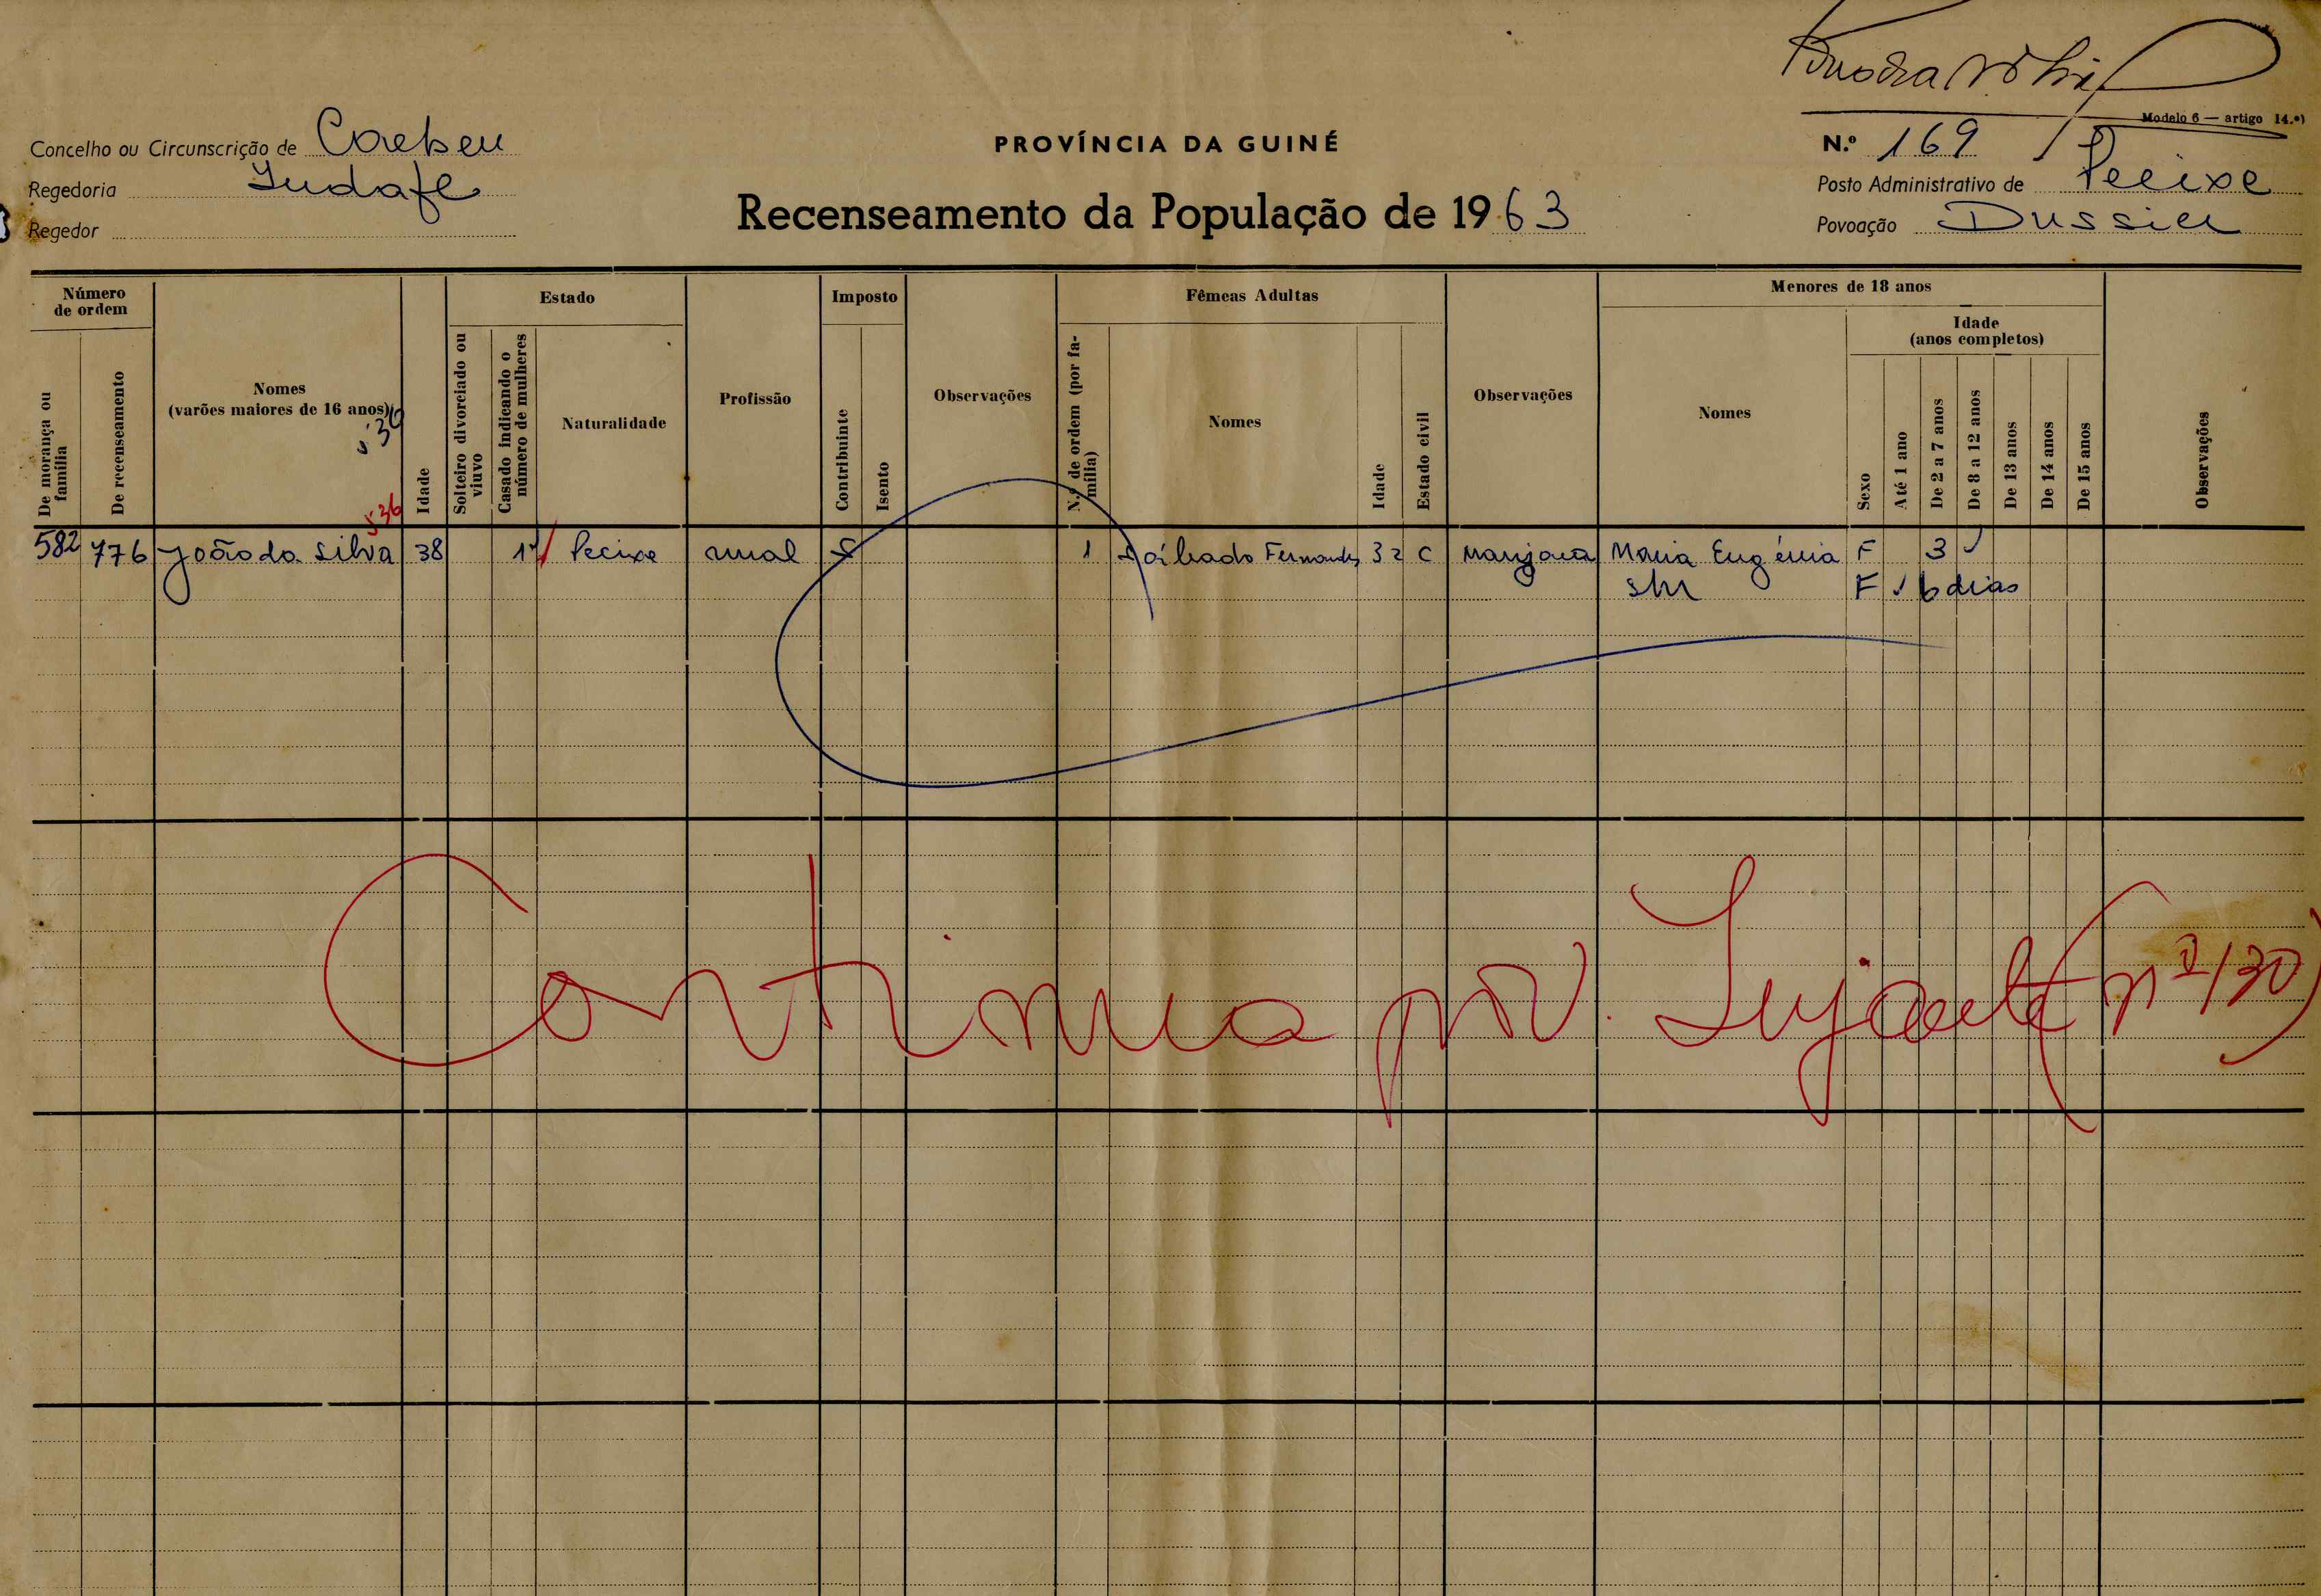 Modelo 6 — artigo 14.º)
Concelho ou Circunscrição de Caebeu
PROVÍNCIA DA GUINÉ
N.º 169
Regedoria Iudafe
Posto Administrativo de Pecixe
Recenseamento da População de 1963
Regedor
Povoação Dussier
Número de ordem
De morança ou família
De recenseamento
Nomes
(varões maiores de 16 anos)
536
Idade
Estado
Solteiro divorciado ou viuvo
Casado indicando o número de mulheres
Naturalidade
Profissão
Imposto
Contribuinte
Isento
Observações
Fêmeas Adultas
N.º de ordem (por família)
Nomes
Idade
Estado civil
Observações
Menores de 18 anos
Nomes
Sexo
Idade
(anos completos)
Até 1 ano
De 2 a 7 anos
De 8 a 12 anos
De 13 anos
De 14 anos
De 15 anos
Observações
582 776 João da Silva 38 1 Pecixe rural 1 Sábado Fernandes 32 C manjaca Maria Eugénia F 3
s/n F 6 dias
Continua por